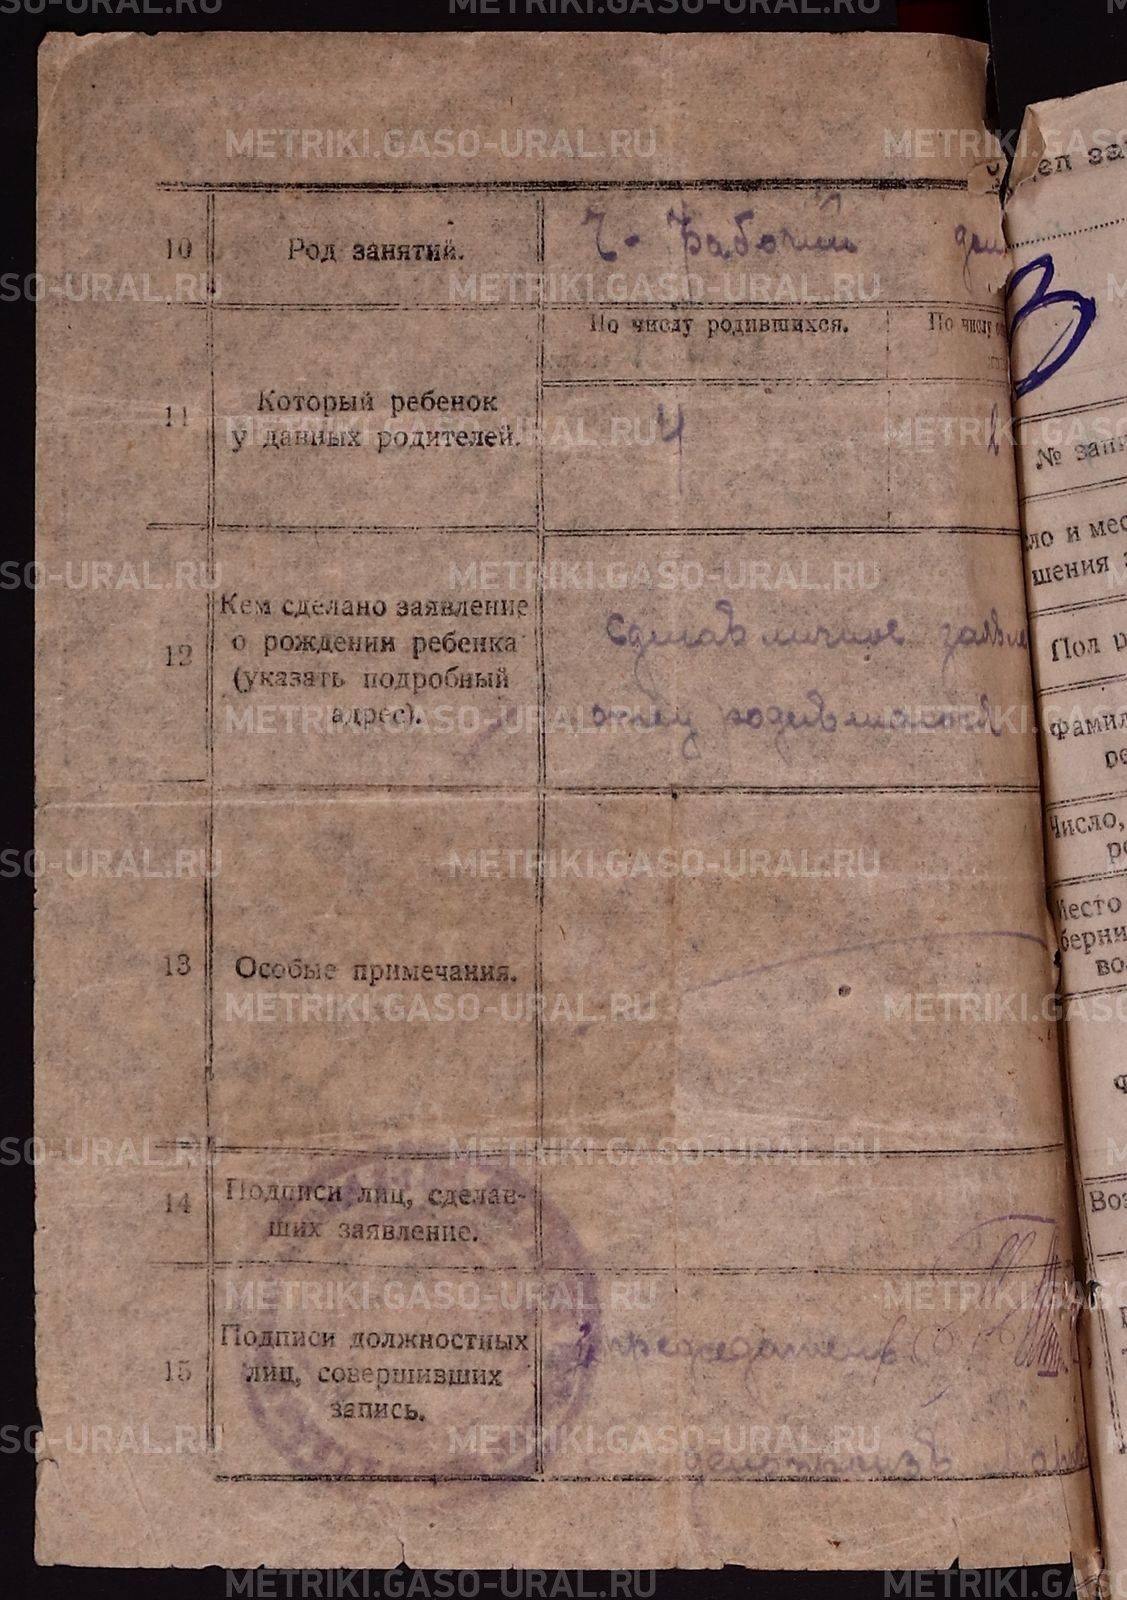 METRIKI.GASO-URAL.RU
10 Род занятий. Ч-рабочий дом
11 Который ребенок
у данных родителей.
По числу родившихся. По числу
4 2
12 Кем сделано заявление
о рождении ребенка
(указать подробный
адрес).
Сделав личное заявле
отец родившагося
13 Особые примечания.
14 Подписи лиц, сделав-
ших заявление.
15 Подписи должностных
лиц, совершивших
запись.
председатель
делопроизв
ел за
№ запи
ло и мес
шения з
Пол р
Фамил
ре
Число,
ро
Место
берни
во
Воз